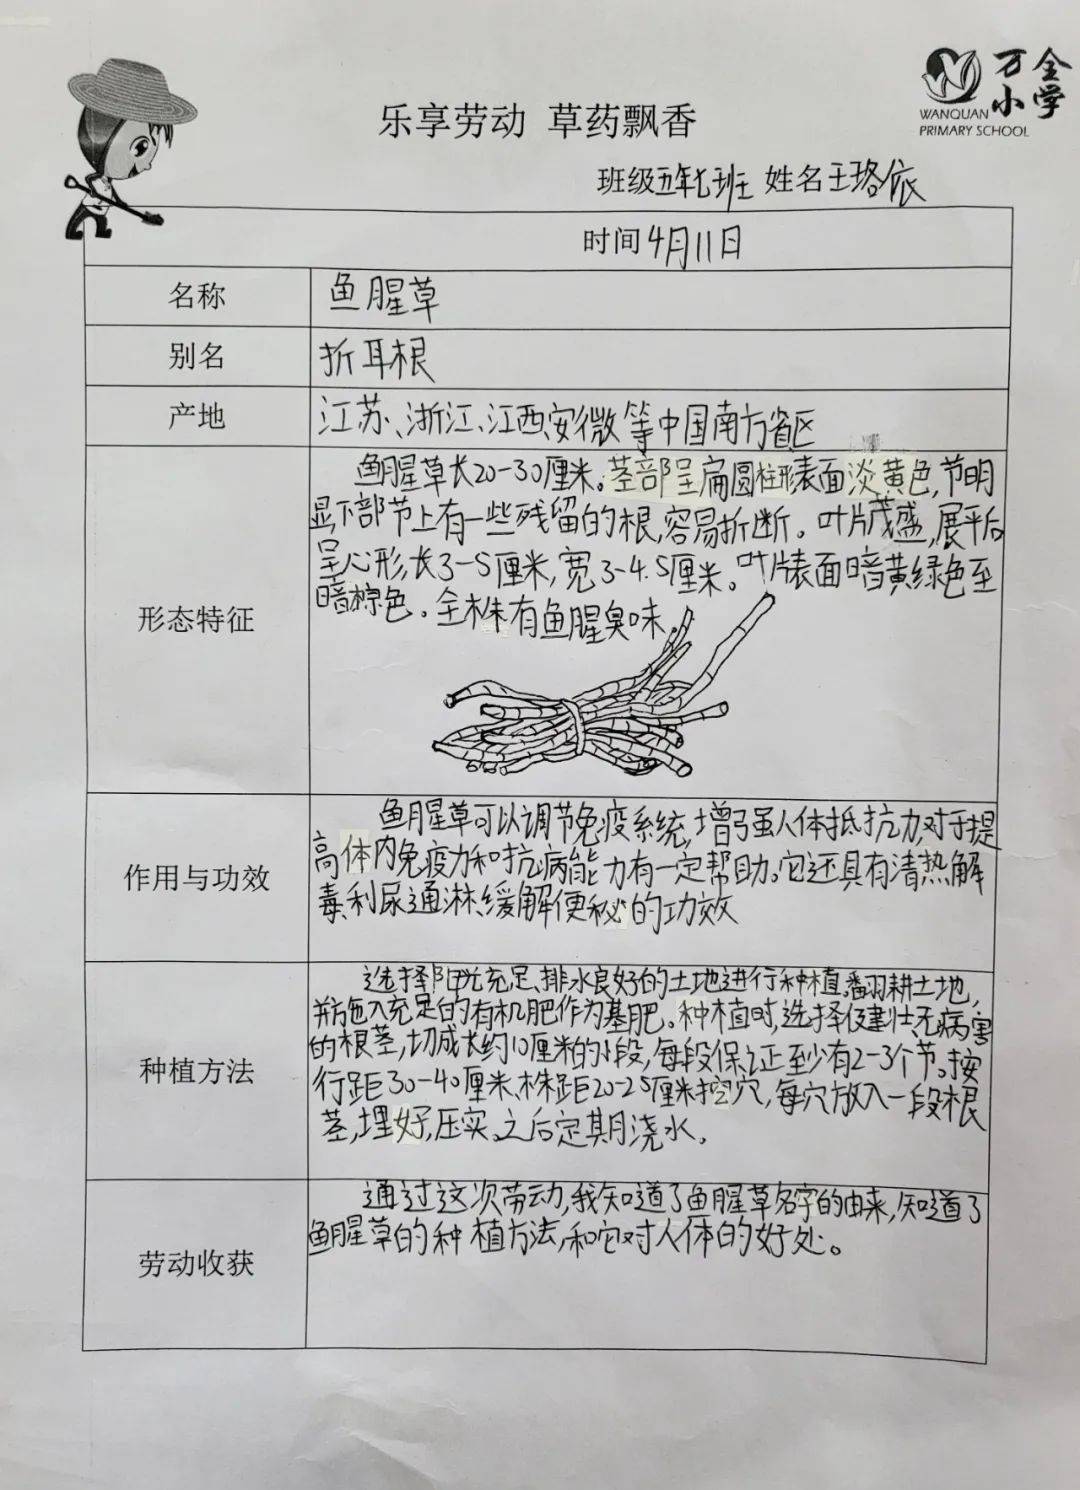 万全
小学
WANQUAN
PRIMARY SCHOOL
乐享劳动 草药飘香
班级五年七班 姓名王珞依
时间4月11日
名称
鱼腥草
别名
折耳根
产地
江苏、浙江、江西、安微等中国南方省区
形态特征
鱼腥草长20-30厘米。茎部呈扁圆柱形表面淡黄色,节明
显,下部节上有一些残留的根,容易折断。叶片茂盛,展平后
呈心形,长3-5厘米,宽3-4.5厘米。叶片表面暗黄绿色至
暗棕色。全株有鱼腥臭味
作用与功效
鱼腥草可以调节免疫系统,增强人体抵抗力,对于提
高体内免疫力和抗病能力有一定帮助。它还具有清热解
毒、利尿通淋、缓解便秘的功效
种植方法
选择阳光充足、排水良好的土地进行种植。翻耕土地,
并施入充足的有机肥作为基肥。种植时,选择健壮无病害
的根茎,切成长约10厘米的小段,每段保证至少有2-3个节。按
行距30-40厘米、株距20-25厘米挖穴,每穴放入一段根
茎,埋好,压实。之后定期浇水。
劳动收获
通过这次劳动,我知道了鱼腥草名字的由来,知道了
鱼腥草的种植方法,和它对人体的好处。